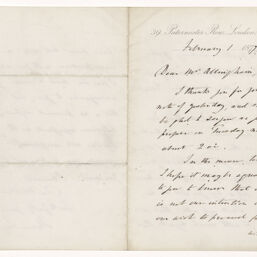 39 Paternoster Row, London,
February 1 187
Dear Mr Allingham,
I thank you for your
note of yesterday, and
be glad to see you as you
propose on Tuesday
about 2 o'c.
In the mean
I hope it may be agree
to you to know that
is not our intention
our wish to